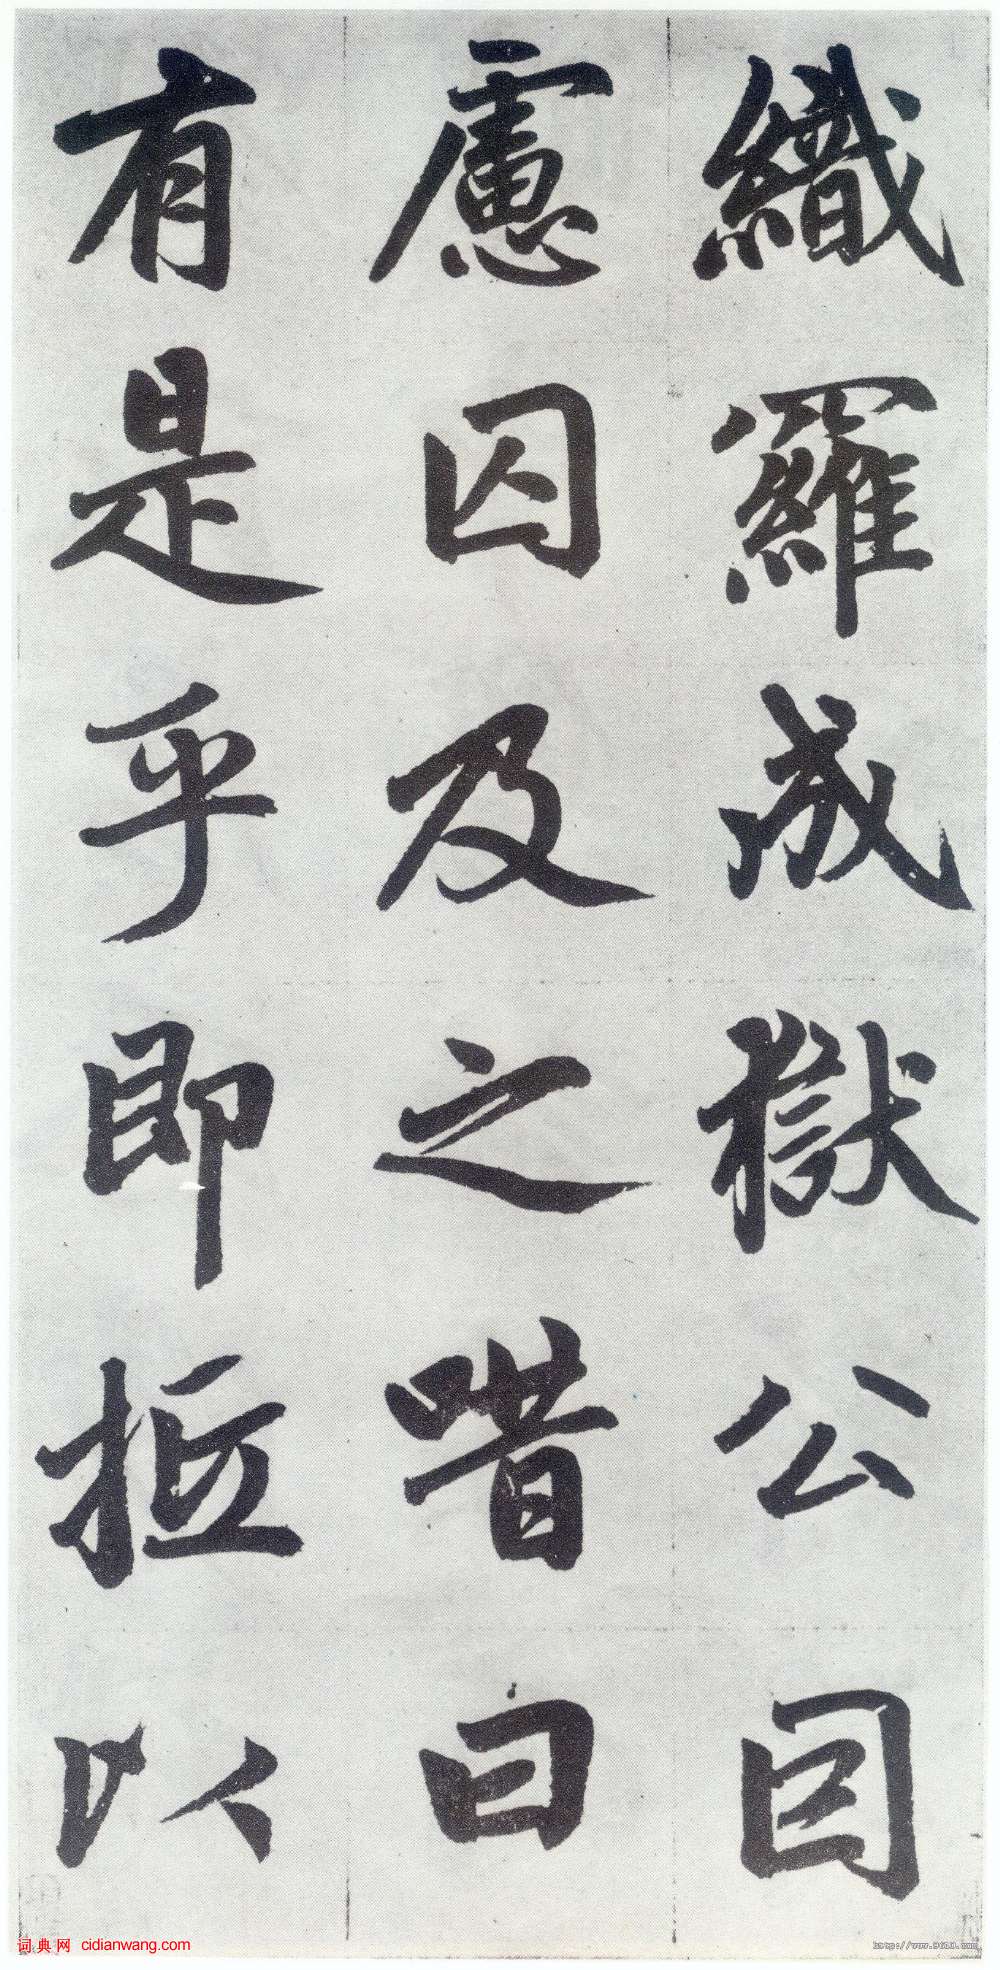 織羅成獄公目
慮囚及之喈曰
有是乎即拉以
词典网 cidianwang.com